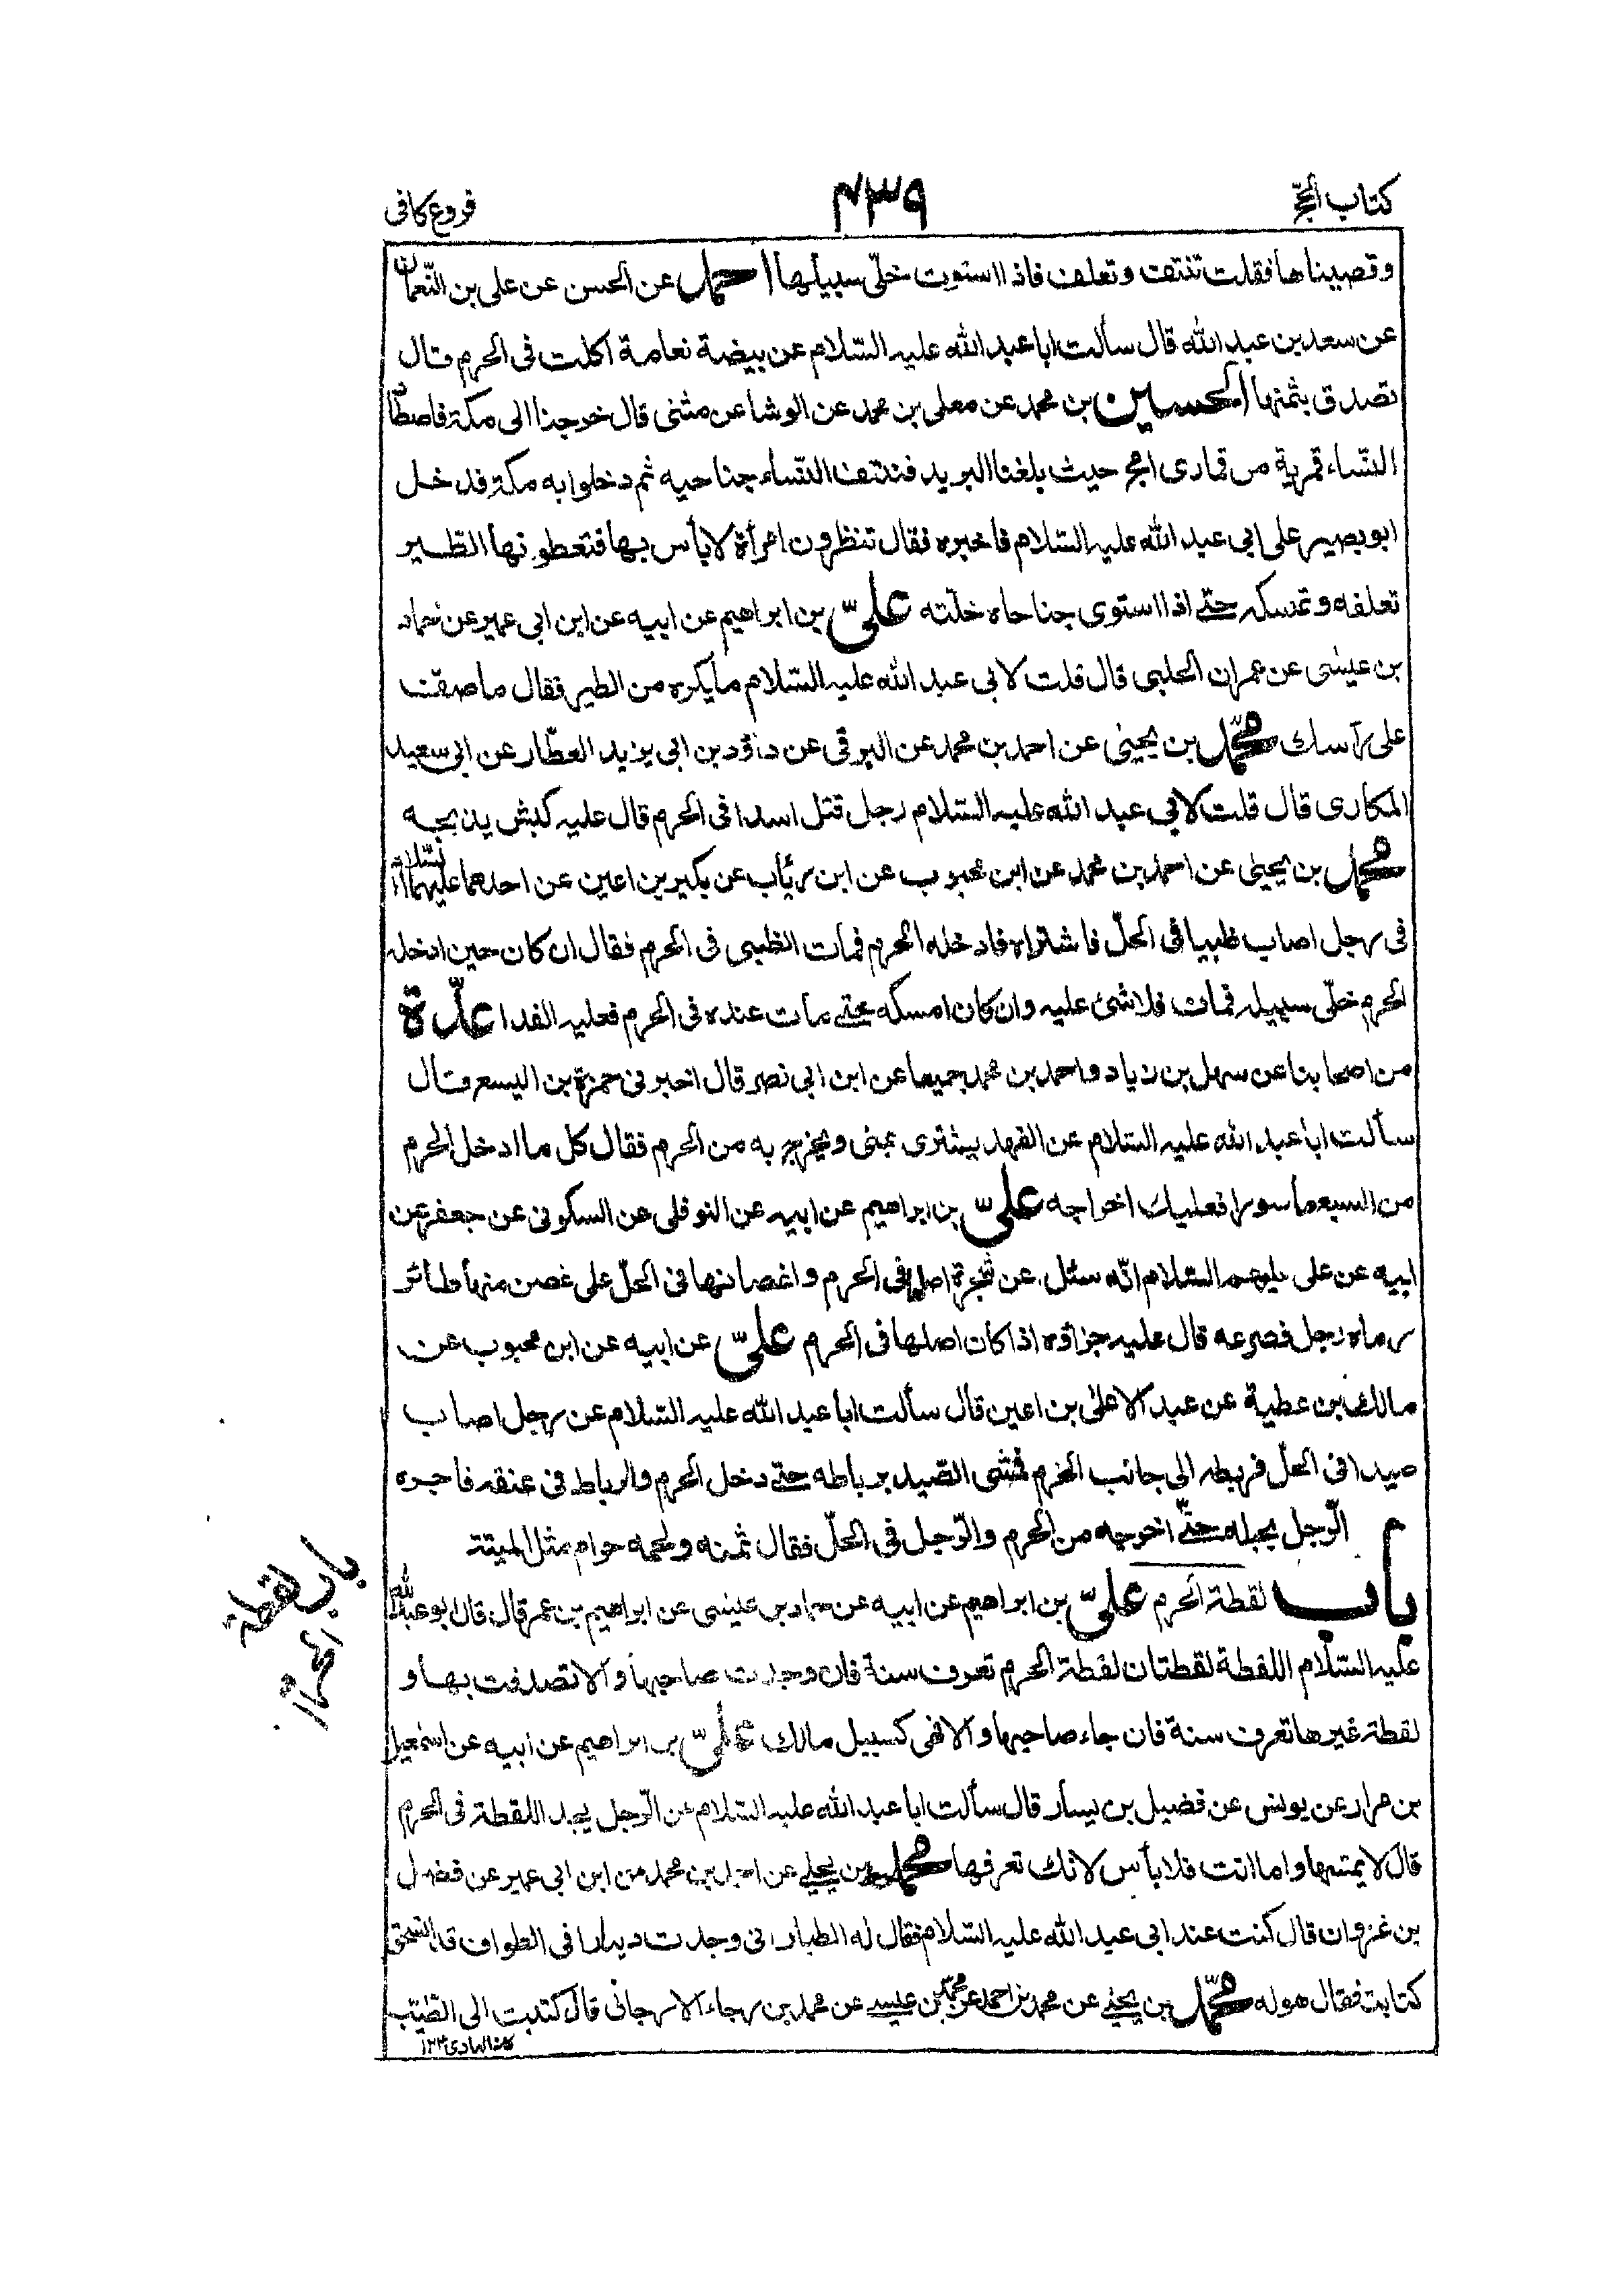 كتاب الحجّ
۴۳۹
فروع كافى
وقصيناها فقلت تنتف وتعلف فاذا استوت خلّى سبيلها احمد عن الحسن عن على بن النّعمان
عن سعد بن عبد الله قال سألت ابا عبد الله عليه السّلام عن بيضة نعامة اكلت فى الحرم قال
تصدق بثمنها الحسين بن محمد عن معلى بن محمد عن الوشا عن مثنى قال خرجنا الى مكة فاصطاد
النّساء قمرية من قمارى امج حيث بلغنا البريد فنتف النّساء جناحيه ثم دخلوا به مكة فدخل
ابو بصير على ابى عبد الله عليه السّلام فاخبره فقال تنظرون امرأة لا بأس بها فتعطونها الطّير
تعلفه وتمسكه حتى اذا استوى جناحاه خلّته علىّ بن ابراهيم عن ابيه عن ابن ابى عمير عن حماد
بن عيسى عن عمران الحلبى قال قلت لابى عبد الله عليه السّلام ما يكره من الطير فقال ما صفّ
على رأسك محمّد بن يحيى عن احمد بن محمد عن البرقى عن داؤد بن ابى يزيد العطّار عن ابى سعيد
المكارى قال قلت لابى عبد الله عليه السّلام رجل قتل اسدا فى الحرم قال عليه كبش يذبحه
محمّد بن يحيى عن احمد بن محمد عن ابن محبوب عن ابن رئاب عن بكير بن اعين عن احدهما عليهما السّلام
فى رجل اصاب ظبيا فى الحلّ فاشتراه فادخله الحرم فمات الظبى فى الحرم فقال ان كان حين ادخله
الحرم خلّى سبيله فمات فلا شئ عليه وان كان امسكه حتى مات عنده فى الحرم فعليه الفدا عدّة
من اصحابنا عن سهل بن زياد واحمد بن محمد جميعا عن ابن ابى نصر قال اخبرنى حمزة بن اليسع قال
سألت ابا عبد الله عليه السّلام عن الفهد يشترى بمنى ويخرج به من الحرم فقال كل ما ادخل الحرم
من السبع مأسورا فعليك اخراجه علىّ بن ابراهيم عن ابيه عن النوفلى عن السكونى عن جعفر عن
ابيه عن على عليهم السّلام انّه سئل عن شجرة اصلها فى الحرم واغصانها فى الحلّ على غصن منها طائر
رماه رجل فصرعه قال عليه جزاؤه اذا كان اصلها فى الحرم علىّ عن ابيه عن ابن محبوب عن
مالك بن عطية عن عبد الاعلى بن اعين قال سألت ابا عبد الله عليه السّلام عن رجل اصاب
صيدا فى الحلّ فربطه الى جانب الحرم فمشى الصّيد برباطه حتى دخل الحرم والرباط فى عنقه فاجره
الرّجل بحبله حتّى اخرجه من الحرم والرّجل فى الحلّ فقال ثمنه ولحمه حرام مثل الميتة
باب لقطة الحرم علىّ بن ابراهيم عن ابيه عن حماد بن عيسى عن ابراهيم بن عمر قال قال ابو عبد الله
عليه السّلام اللقطة لقطتان لقطة الحرم تعرف سنة فان وجدت صاحبها والا تصدقت بها و
لقطة غيرها تعرف سنة فان جاء صاحبها والا فهى كسبيل مالك علىّ بن ابراهيم عن ابيه عن اسمعيل
بن مرار عن يونس عن فضيل بن يسار قال سألت ابا عبد الله عليه السّلام عن الرّجل يجد اللقطة فى الحرم
قال لا يمسّها واما انت فلا بأس لانك تعرفها محمّد بن يحيى عن احمد بن محمد عن ابن ابى عمير عن فضيل
بن غزوان قال كنت عند ابى عبد الله عليه السّلام فقال له الطيار انى وجدت دينارا فى الطواف قد انسحق
كتابته فقال هو له محمّد بن يحيى عن محمد بن احمد عن محمّد بن عيسى عن محمد بن رجاء الارجانى قال كتبت الى الطّيّب
باب لقطة
الحرم